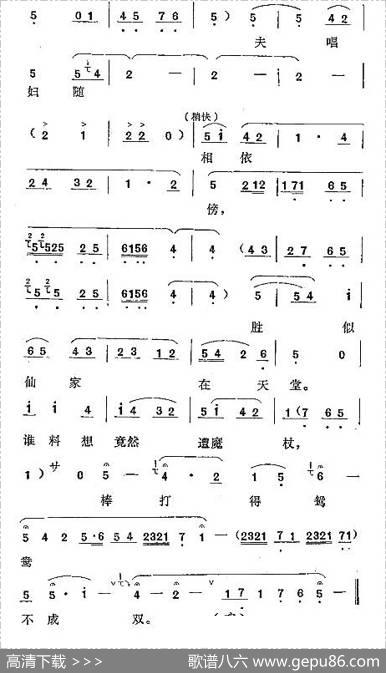 5 0 1 | 4 5 7 6 | 5 ) 5 | 5 4 2 |
夫 唱
5 5 4 | 2 — | 2 — | 2 — |
妇 随
(稍快)
( 2 1 | 2 2 0 ) | 5 i 4 2 | 1 · 4 |
相 依
2 4 3 2 | 1 · 2 | 5 2 1 2 | 1 7 1 6 5 |
傍，
5 5 2 5 2 5 | 6 1 5 6 4 | 4 ( 4 3 | 2 7 6 5 |
5 5 2 5 | 6 1 5 6 4 | 4 ) 5 | 5 5 4 i |
胜 似
6 5 4 3 | 2 3 1 2 | 5 4 2 6 | 5 0 |
仙 家 在 天 堂。
i i 4 | i 4 3 2 | 5 i 4 2 | 1 ( 7 6 5 |
谁 料 想 竟然 遭魔 杖，
1 ) サ 0 5 — 4 · 2 1 5 6 —
棒 打 得 鸳
5 4 2 5 · 6 5 4 2 3 2 1 7 1 — ( 2 3 2 1 7 1 2 3 2 1 7 1 )
鸯
5 5 · i — 4 — 2 — 1 7 1 7 6 5 — ‖
不 成 双。
高清下载 >>> 歌谱八六 www.gepu86.com